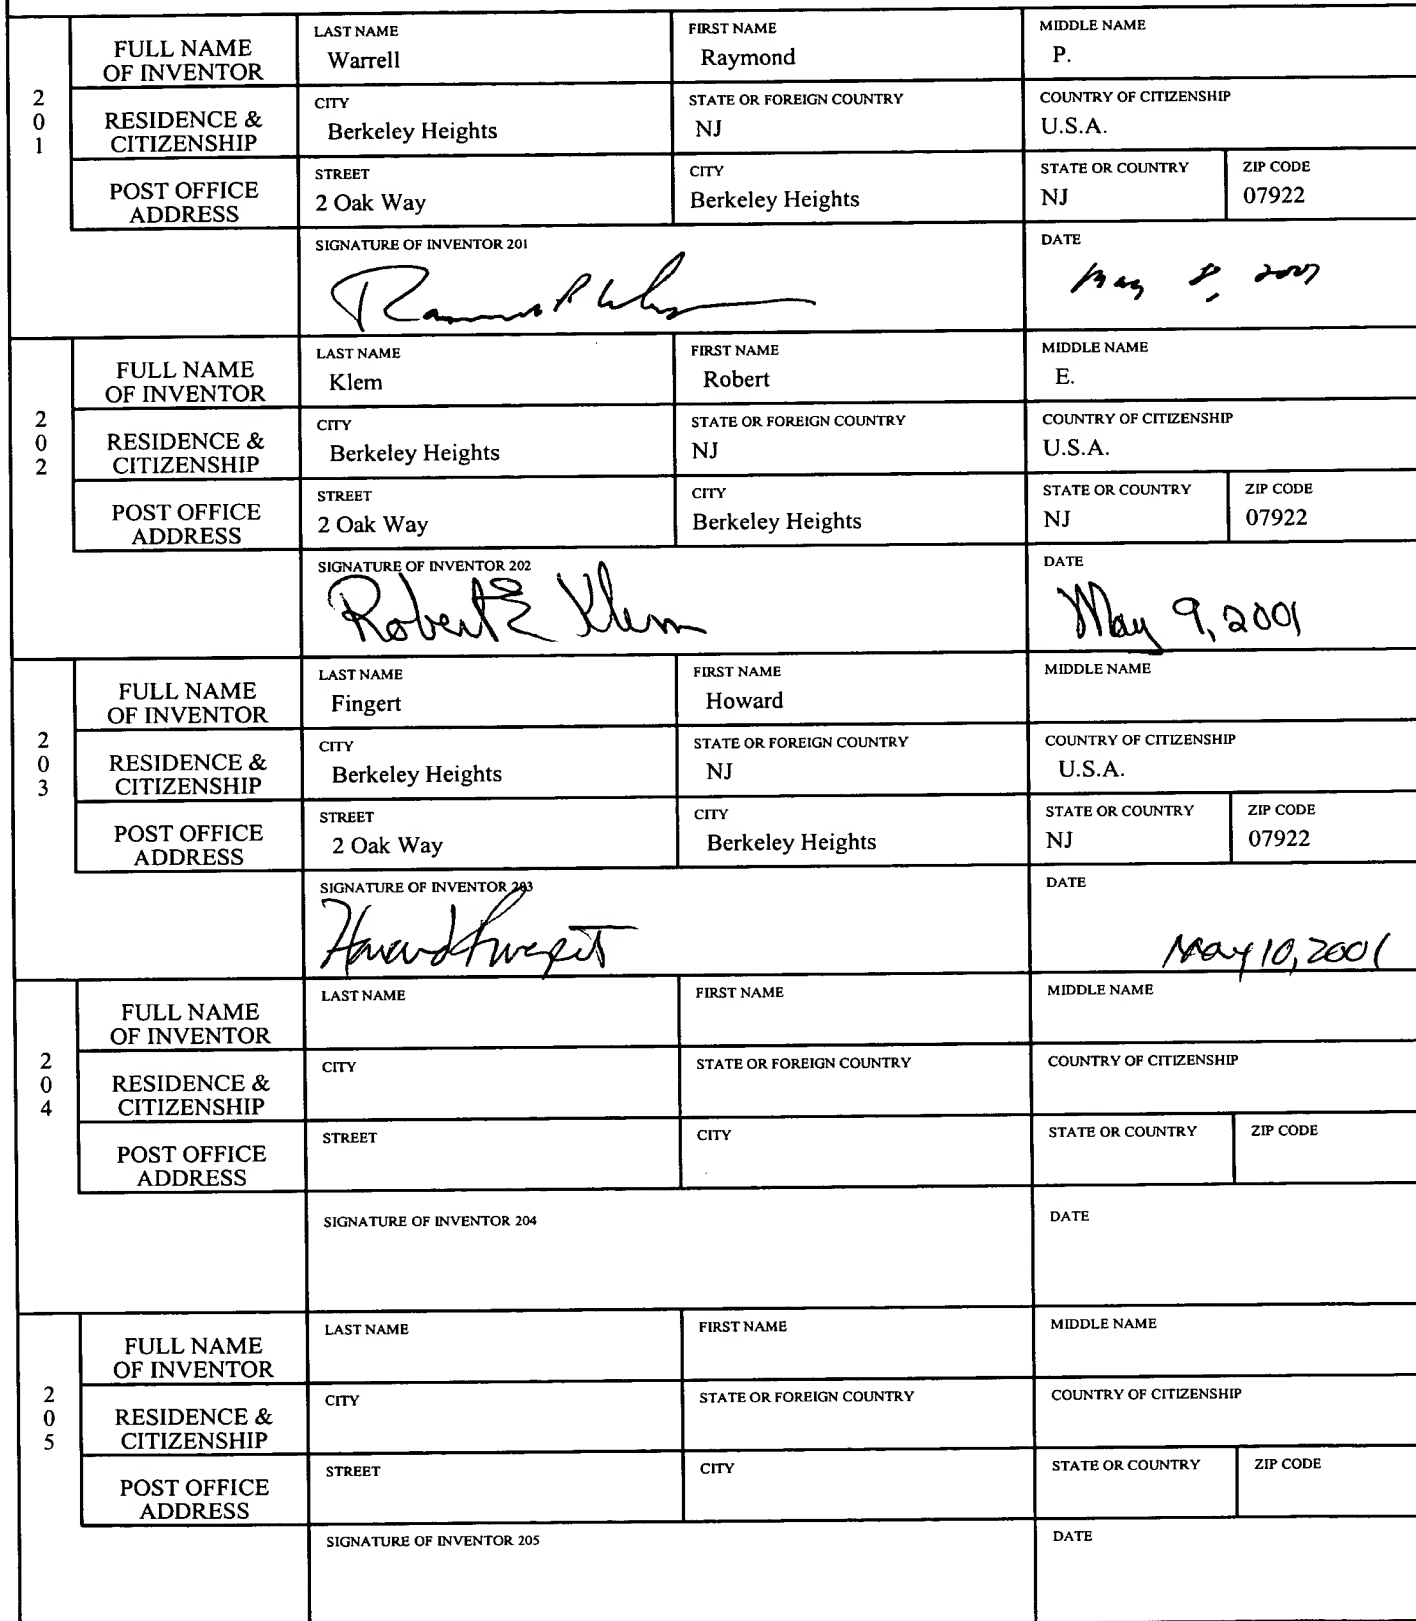 201
FULL NAME OF INVENTOR
LAST NAME
Warrell
FIRST NAME
Raymond
MIDDLE NAME
P.
RESIDENCE & CITIZENSHIP
CITY
Berkeley Heights
STATE OR FOREIGN COUNTRY
NJ
COUNTRY OF CITIZENSHIP
U.S.A.
POST OFFICE ADDRESS
STREET
2 Oak Way
CITY
Berkeley Heights
STATE OR COUNTRY
NJ
ZIP CODE
07922
SIGNATURE OF INVENTOR 201
DATE
May 8, 2001
202
FULL NAME OF INVENTOR
LAST NAME
Klem
FIRST NAME
Robert
MIDDLE NAME
E.
RESIDENCE & CITIZENSHIP
CITY
Berkeley Heights
STATE OR FOREIGN COUNTRY
NJ
COUNTRY OF CITIZENSHIP
U.S.A.
POST OFFICE ADDRESS
STREET
2 Oak Way
CITY
Berkeley Heights
STATE OR COUNTRY
NJ
ZIP CODE
07922
SIGNATURE OF INVENTOR 202
Robert E Klem
DATE
May 9, 2001
203
FULL NAME OF INVENTOR
LAST NAME
Fingert
FIRST NAME
Howard
MIDDLE NAME
RESIDENCE & CITIZENSHIP
CITY
Berkeley Heights
STATE OR FOREIGN COUNTRY
NJ
COUNTRY OF CITIZENSHIP
U.S.A.
POST OFFICE ADDRESS
STREET
2 Oak Way
CITY
Berkeley Heights
STATE OR COUNTRY
NJ
ZIP CODE
07922
SIGNATURE OF INVENTOR 203
Howard Fingert
DATE
May 10, 2001
204
FULL NAME OF INVENTOR
LAST NAME
FIRST NAME
MIDDLE NAME
RESIDENCE & CITIZENSHIP
CITY
STATE OR FOREIGN COUNTRY
COUNTRY OF CITIZENSHIP
POST OFFICE ADDRESS
STREET
CITY
STATE OR COUNTRY
ZIP CODE
SIGNATURE OF INVENTOR 204
DATE
205
FULL NAME OF INVENTOR
LAST NAME
FIRST NAME
MIDDLE NAME
RESIDENCE & CITIZENSHIP
CITY
STATE OR FOREIGN COUNTRY
COUNTRY OF CITIZENSHIP
POST OFFICE ADDRESS
STREET
CITY
STATE OR COUNTRY
ZIP CODE
SIGNATURE OF INVENTOR 205
DATE